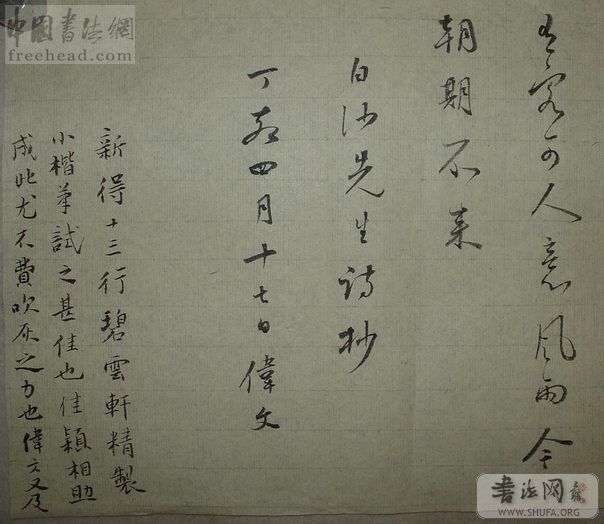 有客可人意風雨今
朝期不來
白沙先生詩抄
丁亥四月十七日偉文
新得十三行碧雲軒精製
小楷筆試之甚佳也佳穎相助
成此尤不費吹灰之力也偉文又及
中國書法網
freehead.com
書法网
WWW.SHUFA.ORG